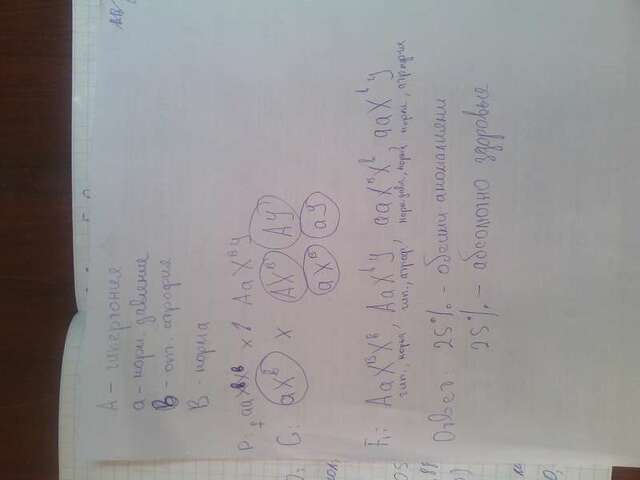 А - гипертония
а - норм. давление
в - от. атрофия
В - норма
P: ♀ aaXᵇXᵇ × ♂ AaXᴮY
G: aXᵇ × AXᴮ AY
aXᴮ aY
F₁: AaXᴮXᵇ AaXᵇY aaXᴮXᵇ aaXᵇY
гип., норма, гип., атроф., норм. давл., норма норм., атрофия
Ответ: 25% - обоими аномалиями
25% - абсолютно здоровые